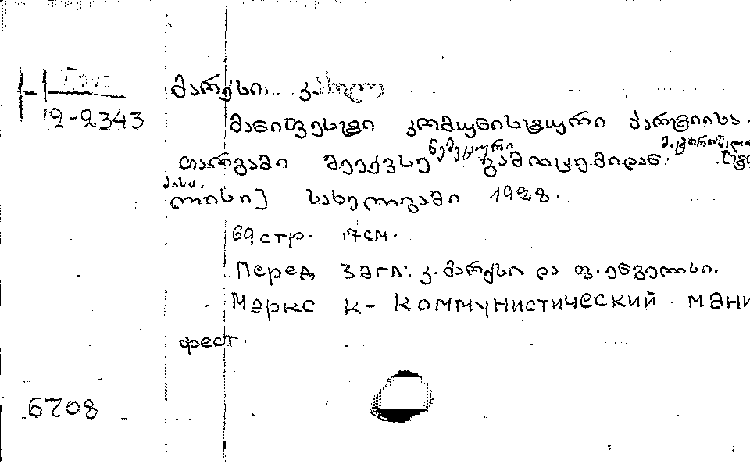 12-2343
მარქსი კარლ
მანიფესტი კომუნისტური პარტიისა.
თარგამი მეექვსე ნემეცური გამოცემიდან.
ლისი] სახელგამი 1928.
69 стр. 17 см.
Перед загл: კ. მარქსი და ფ. ენგელსი.
Маркс К- Коммунистический мани
фест.
6708